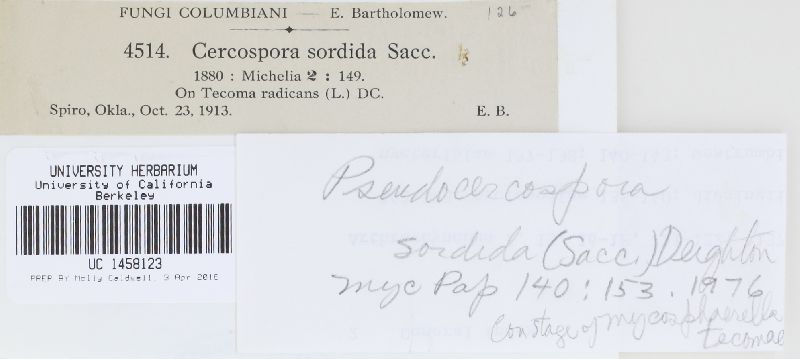 FUNGI COLUMBIANI — E. Bartholomew. 126
4514. Cercospora sordida Sacc.
1880 : Michelia 2 : 149.
On Tecoma radicans (L.) DC.
Spiro, Okla., Oct. 23, 1913. E. B.
UNIVERSITY HERBARIUM
University of California
Berkeley
UC 1458123
PREP BY Molly Caldwell, 3 Apr 2018
Pseudocercospora
sordida (Sacc.) Deighton
Myc Pap 140 : 153. 1976
Con stage of mycosphaerella
tecomae